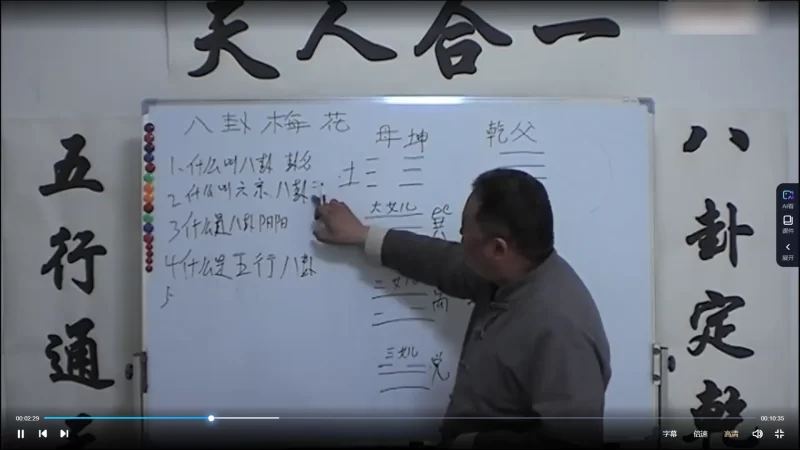 天人合一
五行通
八卦定乾
八卦梅花
1.什么叫八卦 卦名
2.什么叫六亲八卦
3.什么是八卦阴阳
4.什么是五行八卦
5
母坤
土
乾父
大女儿
巽
二女儿
离
三女儿
兑
AI看
课件
展开
00:02:29
00:10:35
字幕
倍速
高清